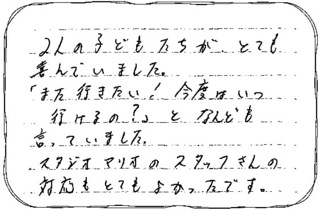 2人の子どもたちが とても
喜んでいました。
「また行きたい！今度はいつ
行けるの？」と なんども
言っていました。
スタジオマリオの スタッフさんの
対応もとてもよかったです。